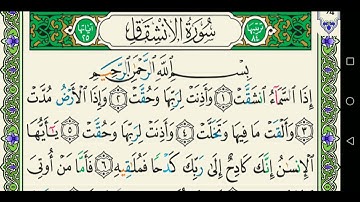 ترتيبها ٨٤ سُورَةُ الِانْشِقَاقِ آياتها ٢٥
بِسْمِ اللَّهِ الرَّحْمَٰنِ الرَّحِيمِ
إِذَا السَّمَآءُ انْشَقَّتْ ١ وَأَذِنَتْ لِرَبِّهَا وَحُقَّتْ ٢ وَإِذَا الْأَرْضُ مُدَّتْ
٣ وَأَلْقَتْ مَا فِيهَا وَتَخَلَّتْ ٤ وَأَذِنَتْ لِرَبِّهَا وَحُقَّتْ ٥ يَٰٓأَيُّهَا
الْإِنسَٰنُ إِنَّكَ كَادِحٌ إِلَىٰ رَبِّكَ كَدْحًا فَمُلَٰقِيهِ ٦ فَأَمَّا مَنْ أُوتِىَ